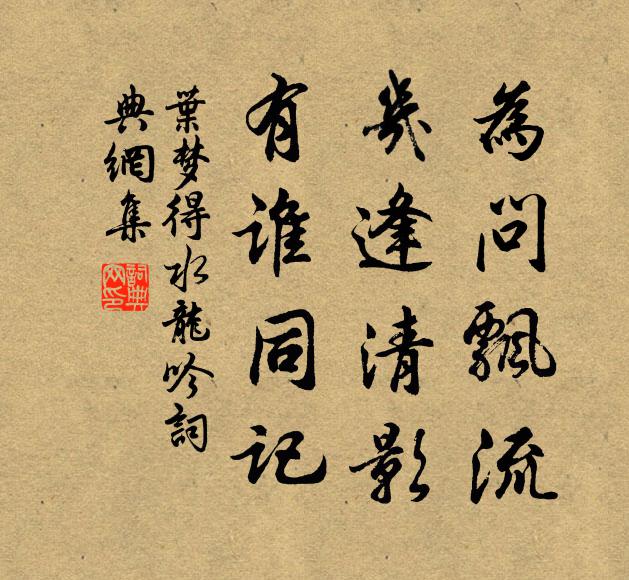 為問飄流
幾逢清影
有誰同記
葉梦得水龍吟詞
典網集
詞典網印